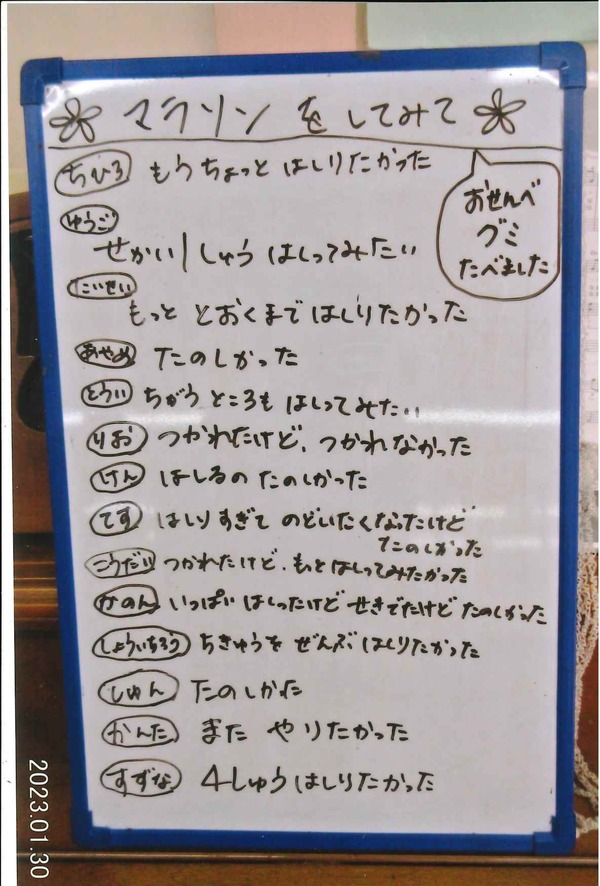 マラソン をしてみて
おせんべ
グミ
たべました
ちひろ もうちょっと はしりたかった
ゆうご
せかい1しゅう はしってみたい
こいせい
もっと とおくまで はしりたかった
あやめ たのしかった
とうい ちがうところも はしってみたい
りお つかれたけど、つかれなかった
けん はしるの たのしかった
てす はしりすぎて のどいたくなったけど
たのしかった
こうだい つかれたけど、もっとはしってみたかった
かのん いっぱい はしったけど せきでたけど たのしかった
しょういちろう ちきゅうを ぜんぶ はしりたかった
しゅん たのしかった
かんた また やりたかった
すずな 4しゅうはしりたかった
2023.01.30